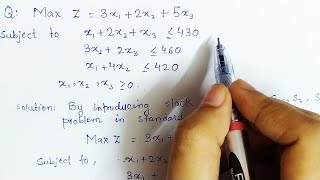 Q: Max Z = 3x₁ + 2x₂ + 5x₃
Subject to x₁ + 2x₂ + x₃ ≤ 430
3x₂ + 2x₃ ≤ 460
x₁ + 4x₂ ≤ 420
x₁, x₂, x₃ ≥ 0.
Solution: By introducing slack S₂, S₃
problem in standard
Max Z = 3x₁ +
Subject to, x₁ + 2x₂
3x₁ +